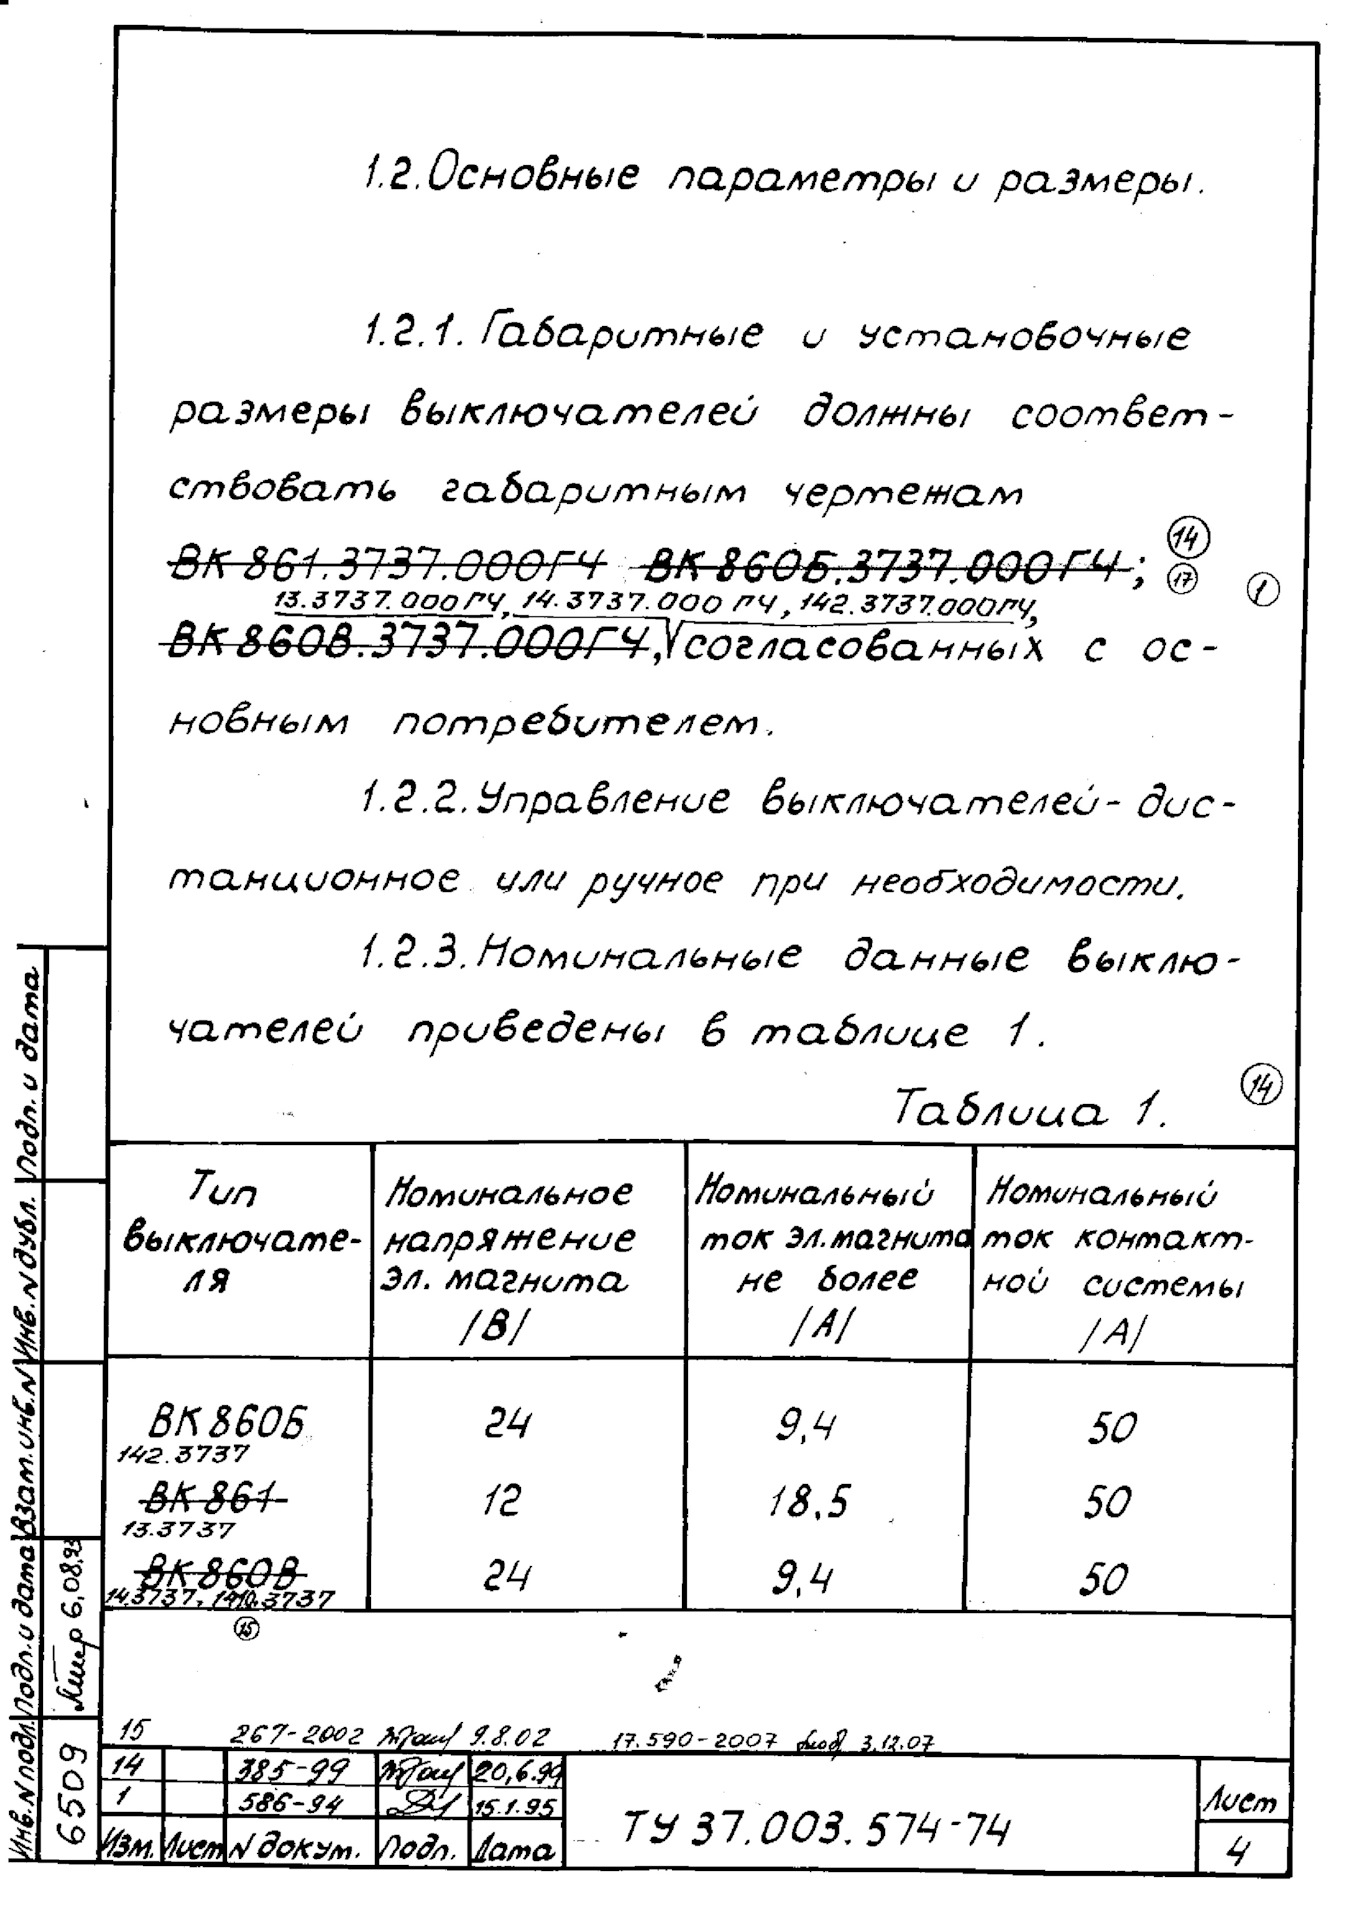 1.2. Основные параметры и размеры.
1.2.1. Габаритные и установочные
размеры выключателей должны соответ-
ствовать габаритным чертежам
ВК 861.3737.000ГЧ ВК 860Б.3737.000ГЧ;
14
17
1
13.3737.000ГЧ, 14.3737.000 ГЧ, 142.3737.000ГЧ,
ВК 860В.3737.000ГЧ, согласованных с ос-
новным потребителем.
1.2.2. Управление выключателей - дис-
танционное или ручное при необходимости.
1.2.3. Номинальные данные выклю-
чателей приведены в таблице 1.
14
Таблица 1.
Тип
выключате-
ля
Номинальное
напряжение
эл. магнита
/В/
Номинальный
ток эл. магнита
не более
/А/
Номинальный
ток контакт-
ной системы
/А/
ВК 860Б 24 9,4 50
142.3737
ВК 861 12 18,5 50
13.3737
ВК 860В 24 9,4 50
14.3737, 1410.3737
15
15 267-2002 9.8.02 17.590-2007 3.12.07
14 385-99 20.6.99
1 586-94 15.1.95
Изм. Лист N докум. Подп. Дата
ТУ 37.003.574-74
Лист
4
Инв. N подл. Подп. и дата Взам. инв. N Инв. N дубл. Подп. и дата
6509 6.08.93